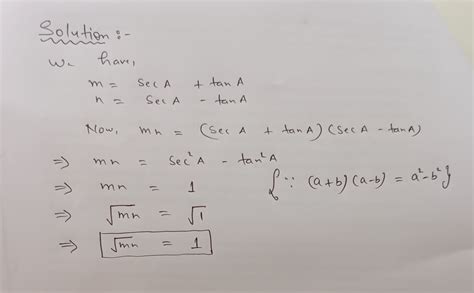 Solution :-
We have,
m = sec A + tan A
n = sec A - tan A
Now, mn = (sec A + tan A) (sec A - tan A)
⇒ mn = sec²A - tan²A
⇒ mn = 1 {∵ (a+b) (a-b) = a²-b²}
⇒ √mn = √1
⇒ √mn = 1